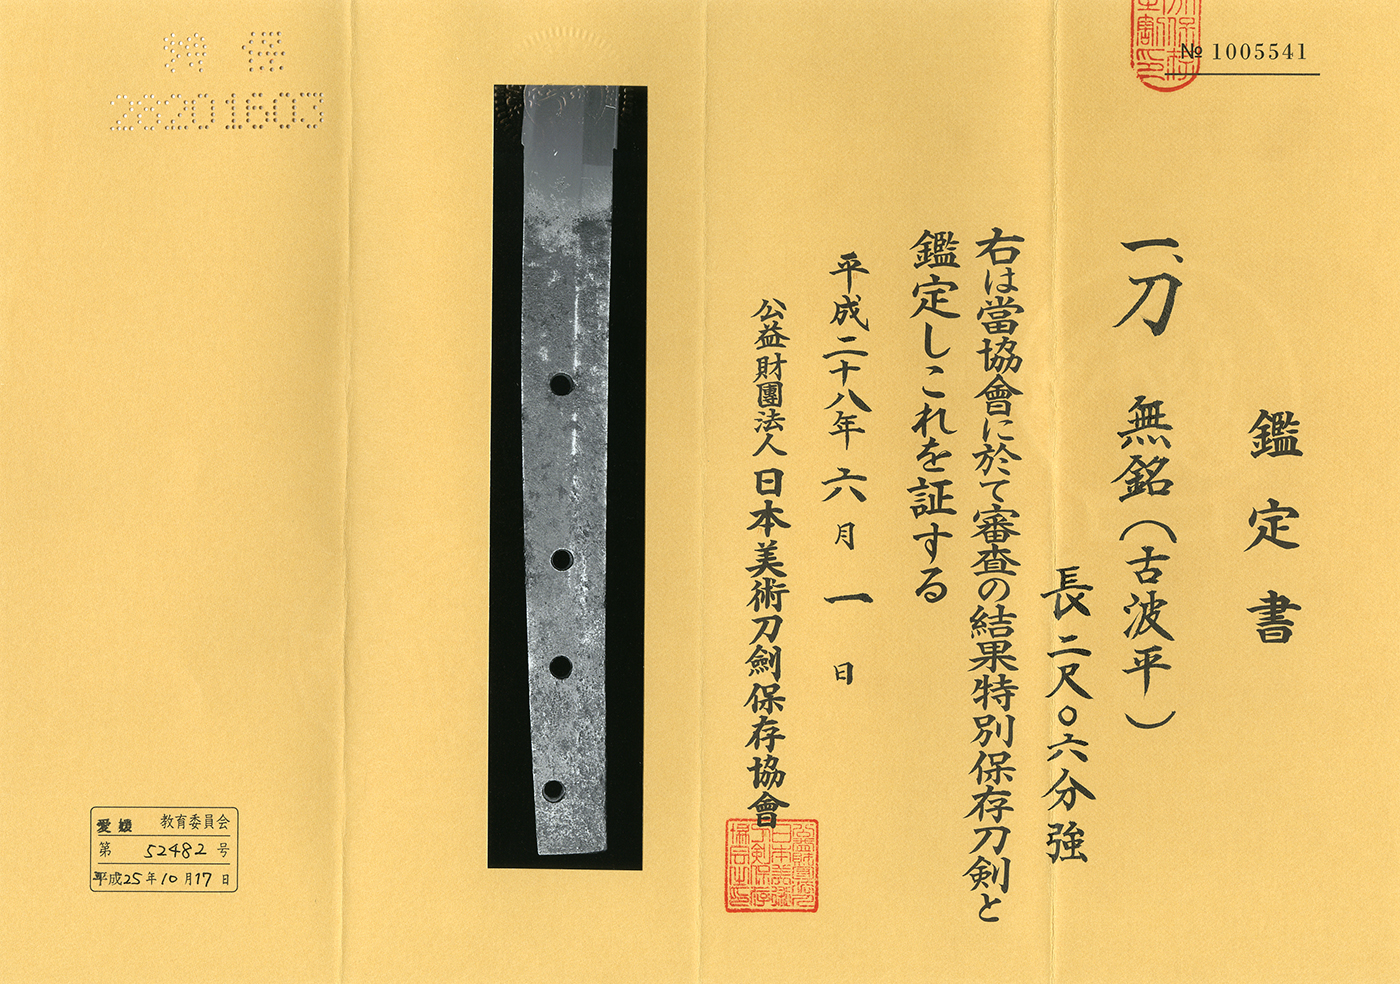 № 1005541
鑑定書
一、刀 無銘（古波平）
長二尺〇六分強
右は當協會に於て審査の結果特別保存刀剣と
鑑定しこれを証する
平成二十八年六月一日
公益財團法人 日本美術刀劍保存協會
特保
28201603
愛媛 教育委員会
第 52482 号
平成25年10月17日